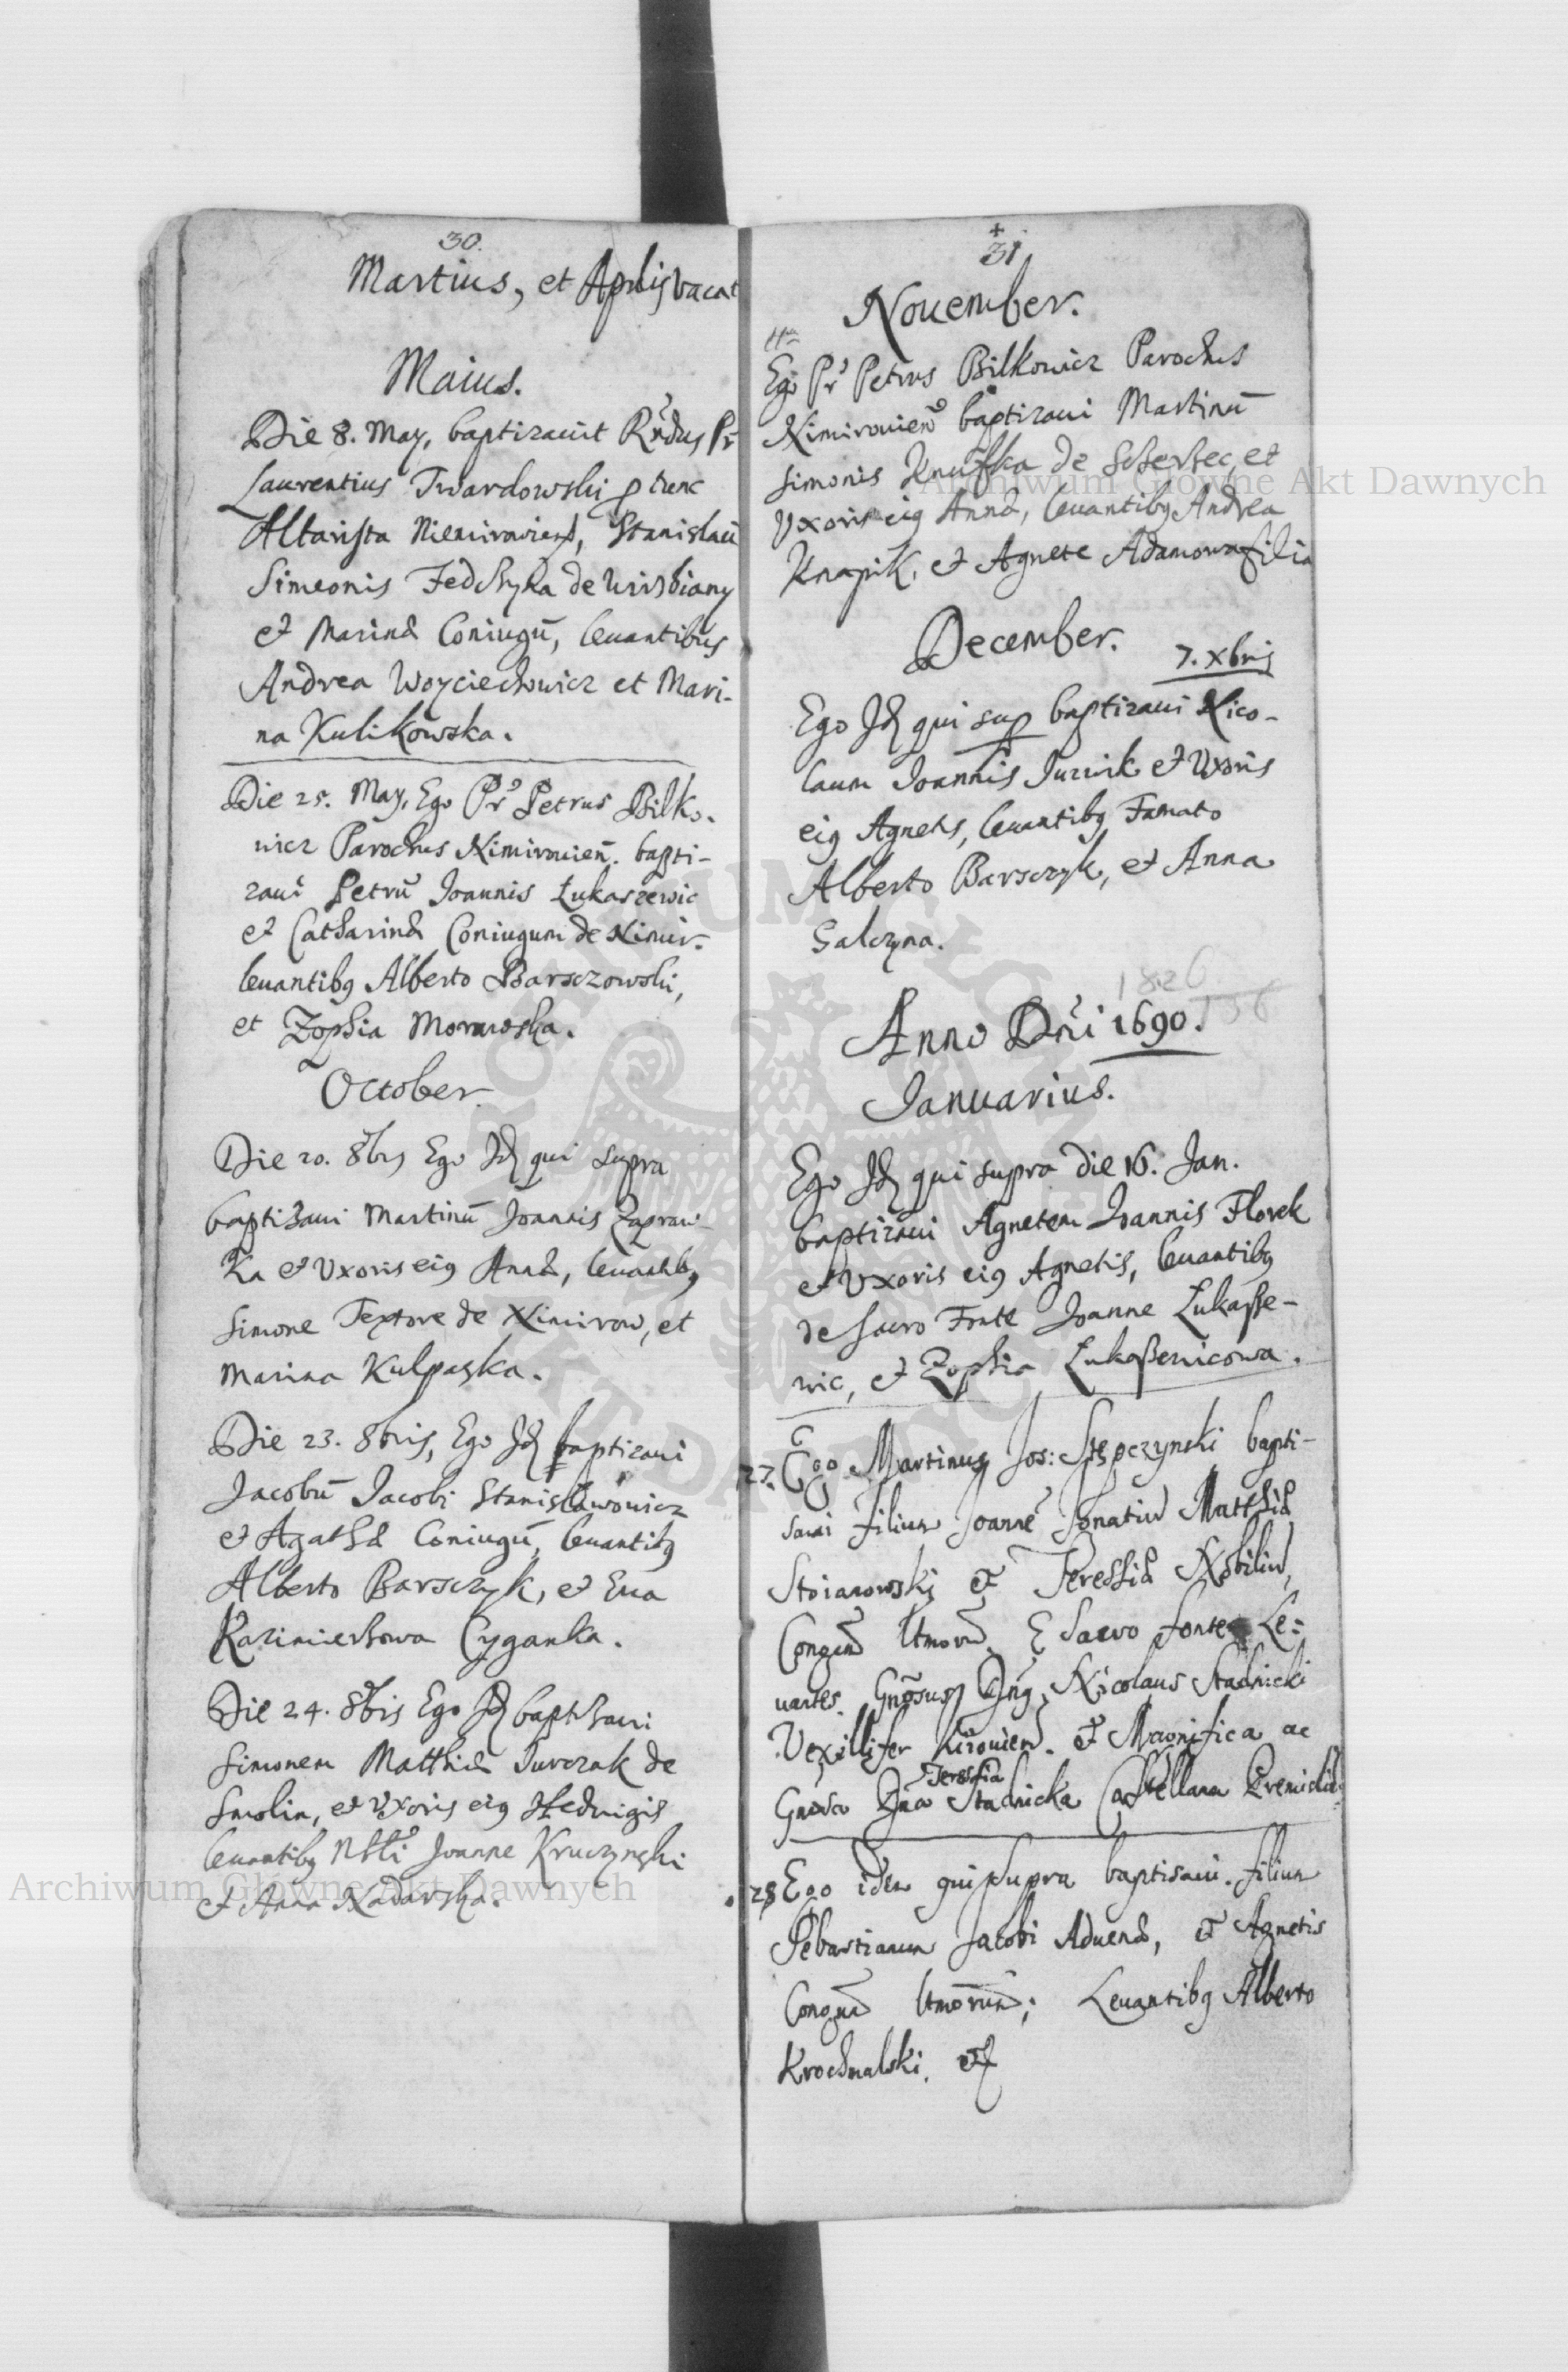 30.
Martius, et Aprlis vacat
Maius.
Die 8. May, baptizauit Rndus Pr
Laurentius Twardowski p tunc
Altarista Niemirowiens, Stanislaū
Simeonis Fedchyka de Wirzbiany
et Marinæ Coniugū, leuantibus
Andrea Woyciechowicz et Mari-
na Kulikowska.
Die 25. May, Ego Pr Petrus Bilko-
wicz Parochus Nimirouień. bapti-
zaui Petrū Joannis Łukaszewic
et Catharinæ Coniugum de Nimir.
leuantibg Alberto Barsczowski,
et Zophia Morawska.
October
Die 20. 8bris Ego Jd qui supra
baptizaui Martinū Joannis
Ka et Vxoris eig Annæ, leuantibg
Simone Textore de Nimirow, et
Marina Kulpaska.
Die 23. 8bris, Ego Jd baptizaui
Jacobū Jacobi Stanisławowicz
et Agathæ Coniugū, leuantibg
Alberto Barsczyk, et Eua
Kazimierzowa Cyganka.
Die 24. 8bris Ego Jd baptisaui
Simonem Matthiæ Jurczak de
Smolin, et Vxoris eig Heduigis
leuantibg Nbli Joanne Kruczynski
et Anna Nadarska.
+
31
Nouember.
11a
Ego Pr Petrus Bilkowicz Parochus
Nimirouien baptizaui Martinū
Simonis Knufka de Scherzec, et
Vxoris eig Annæ, leuantibg Andrea
Knapik, et Agnete Adamowa filia
December.
7. Xbris
Ego Jd qui sup baptizaui Nico-
laum Joannis Juzwik et Vxoris
eig Agnetis, leuantibg Famato
Alberto Barsczyk, et Anna
Galczyna.
1826
136
Anno Dni 1690.
Januarius.
Ego Jd qui supra die 16. Jan.
baptizaui Agnetem Joannis Florek
et Vxoris eig Agnetis, leuantibg
de sacro Fonte Joanne Łukasze-
wic, et Zophia Łukaszewicowa.
27. Ego Martinus Jos: Stępczynski bapti-
saui filium Joanē Ignatiū Matthiæ
Stoianowski et Teressiæ Nobiliū,
Congū ltmorū. E Sacro fonte Le:
uantes. Gnosus Dng Nicolaus Stadnicki
Vexillifer et Magnifica ac
Teressia
Gnosa Dna Stadnicka Castellana Premislie
28 Ego idem qui supra baptisaui. filium
Sebastianum Jacobi Aduenæ, et Agnetis
Congū ltmorum; Leuantibg Alberto
Krochmalski. et
Archiwum Główne Akt Dawnych
Archiwum Główne Akt Dawnych
ARCHIWUM GŁÓWNE AKT DAWNYCH